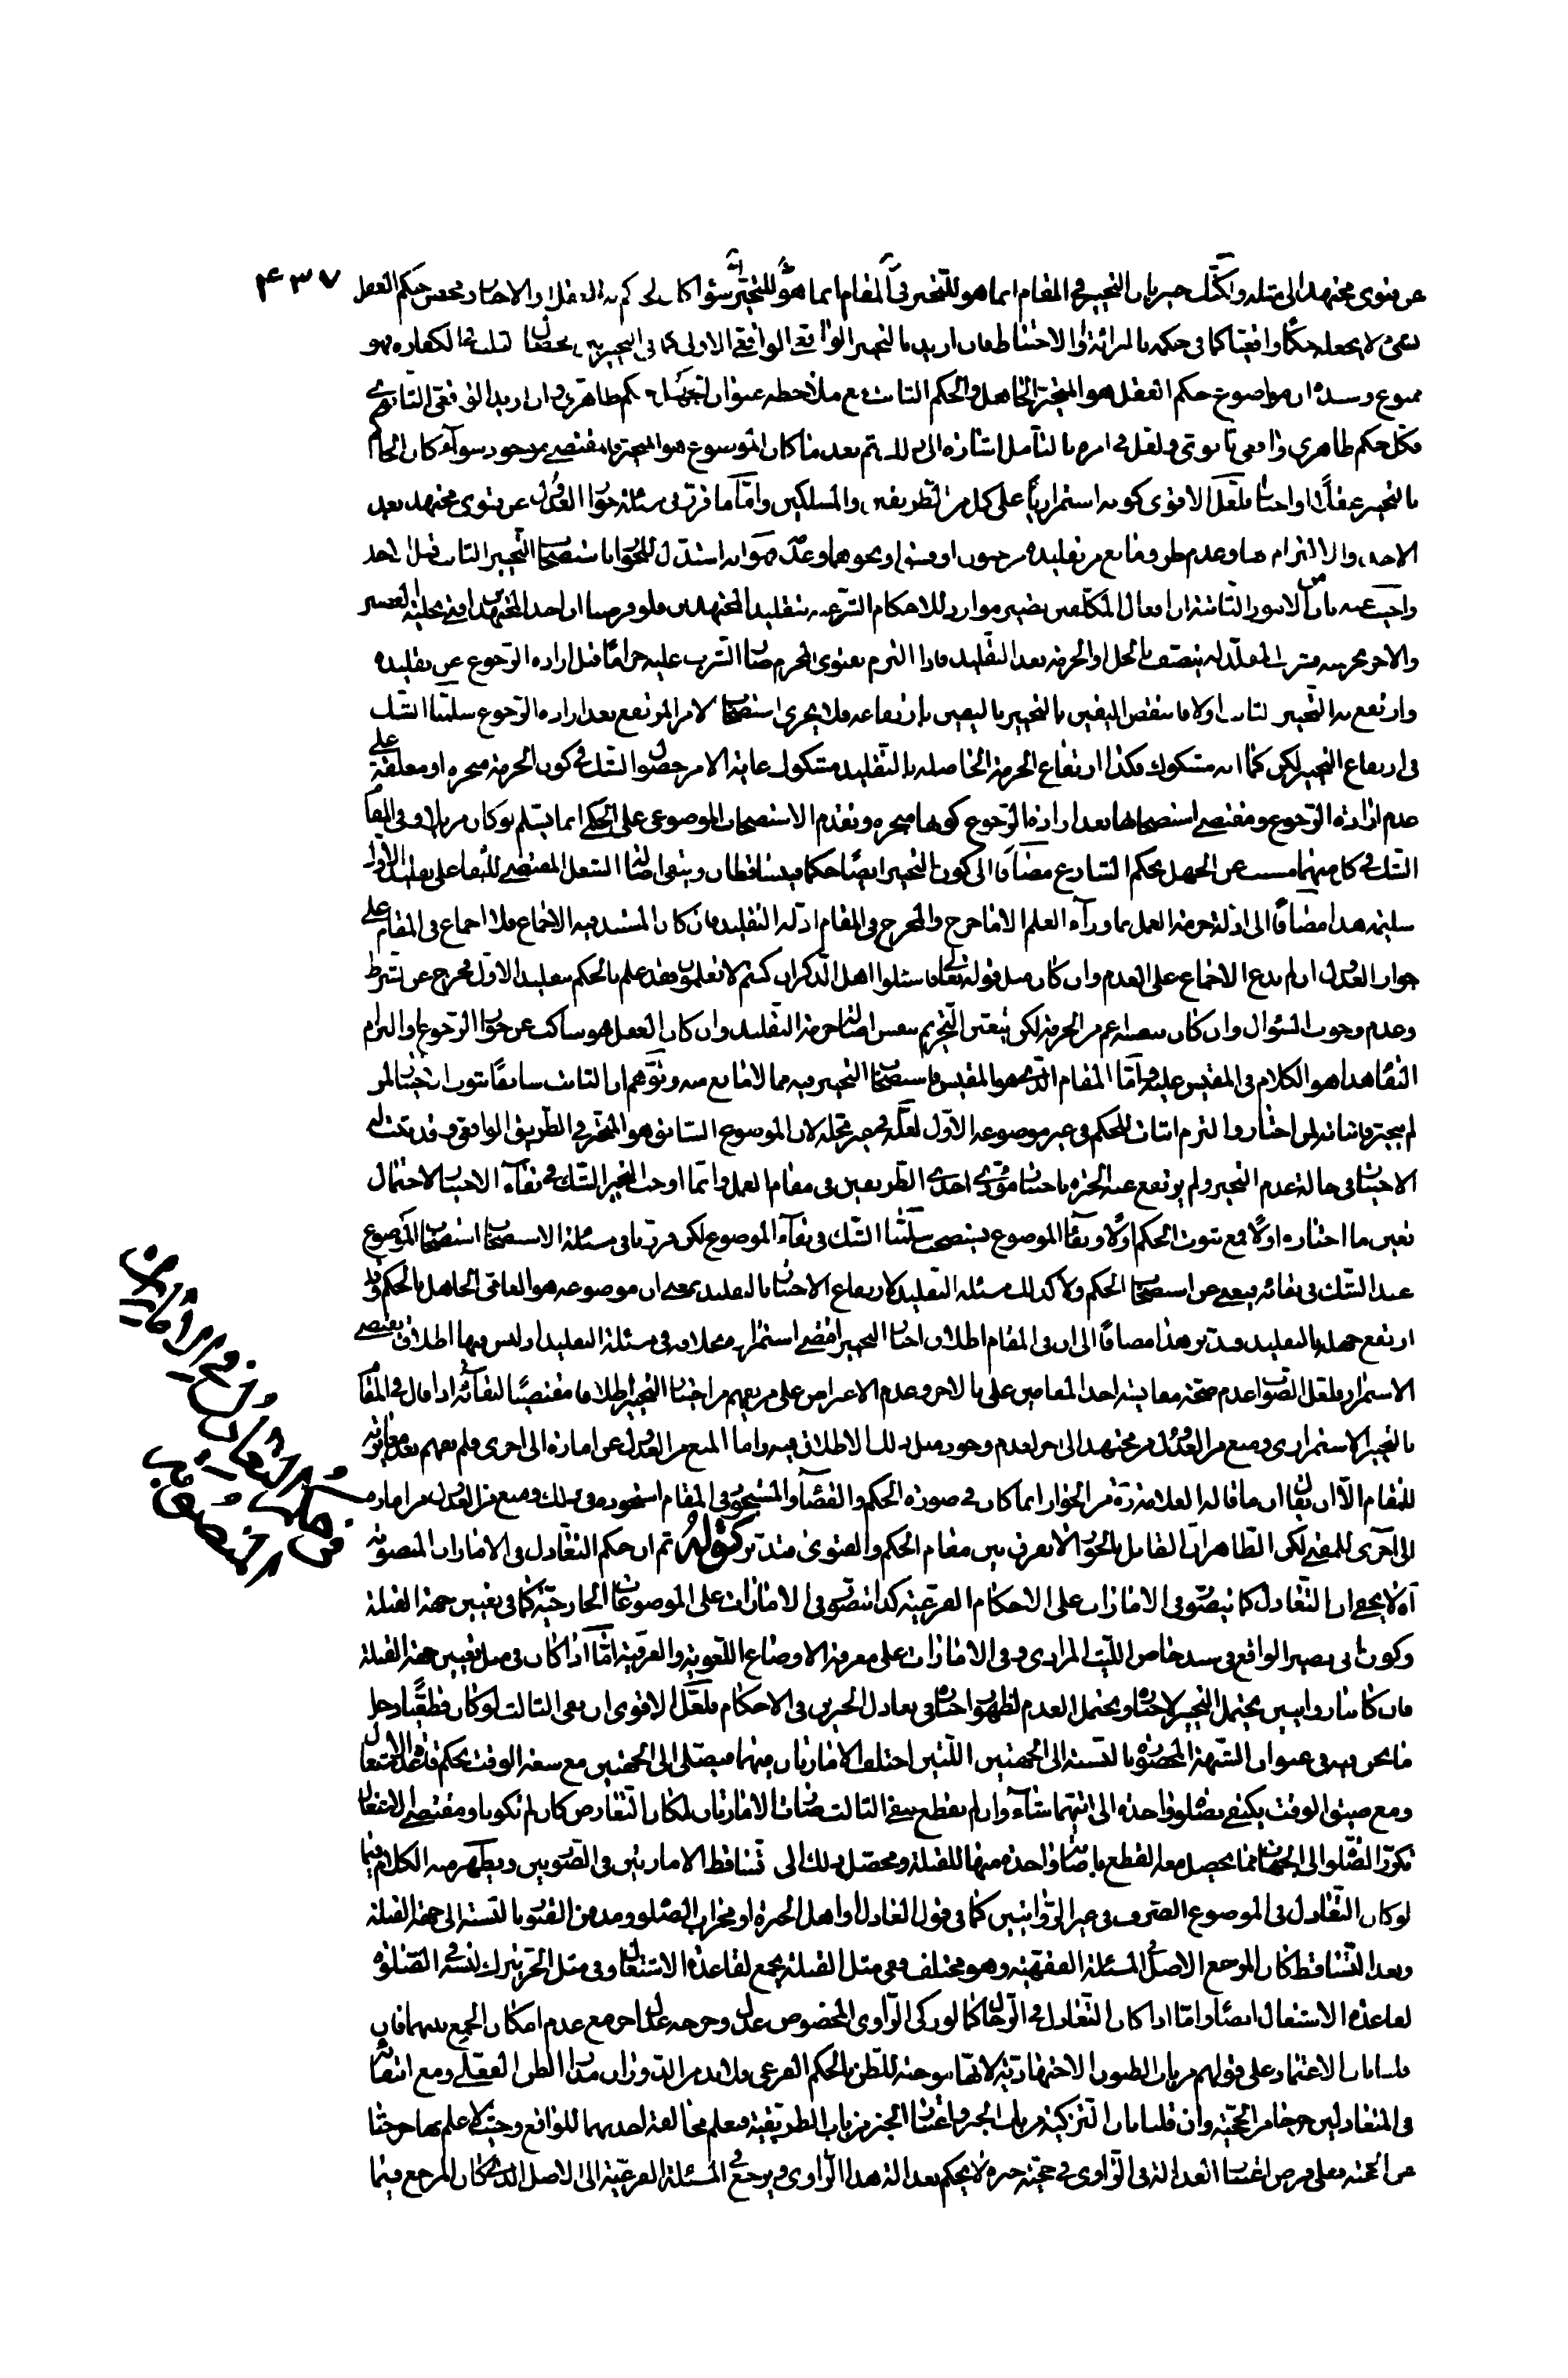 ۴۳۷
عن فتوى مجتهد الى مثله في المقام انما هو للتخيير في المقام انما هو للمتخير سواء كان الحاكم به العقل او الاخبار حكم العقل
كما في حكمه بالبرائة او الاحتياط فان اريد بالتخيير الواقعي الاولي كما في التخيير بين خصال الكفاره فهو
ممنوع موضوع حكم العقل هو المتخير الجاهل والحكم الثابت مع ملاحظة عنوان الجهل حكم ظاهري وان اريد الواقعي الثانوي
فكل حكم ظاهري واقعي ثانوي ولعل في امره بالتامل اشاره الى ذلك ثم بعد ما كان الموضوع هو المتخير فالمقتضي موجود سواء كان الحاكم
بالتخيير عقلا او اخبارا فلعل الاقوى كونه استمراريا على كل من الطريقين والمسلكين واما ما فرق في مسئلة جواز العدول عن فتوى مجتهد بعد
الاخذ والالتزام بها وعدم طرو مانع من تقليده من جنون او فسق او نحوهما وعدم جوازه استدل للجواز باستصحاب التخيير الثابت قبل الاخذ
واجيب عنه بان من الامور الثابتة ان افعال المكلفين تصير موارد للاحكام الشرعية بتقليد المجتهدين فلو فرضنا ان احد المجتهدين افتى بحلية العصير
والاخر بحرمته فشرب المقلد له يتصف بالحل او الحرمة بعد التقليد فاذا التزم بفتوى المحرم صار الشرب عليه حراما قبل اراده الرجوع عن تقليده
وارتفع به التخيير الثابت اولا فانتقض اليقين بالتخيير باليقين بارتفاعه فلا يجري استصحاب الامر المرتفع بعد اراده الرجوع سلمنا الشك
في ارتفاع التخيير لكن كما انه مشكوك فكذا ارتفاع الحرمة الحاصلة بالتقليد مشكوك غاية الامر حصول الشك في كون الحرمة منجزه او معلقة على
عدم ارادة الرجوع ومقتضى استصحابها بعد ارادة الرجوع كونها منجزه وتقدم الاستصحاب الموضوعي على الحكمي انما يسلم لو كان مزيلا وفي المقام
الشك في كل منهما مسبب عن الجهل بحكم الشارع مضافا الى كون التخيير ايضا حكما فيتساقطان ويبقى اصالة الشغل المقتضي للبقاء على تقليد الاول
سليمة هذا مضافا الى ادلة حرمة العمل بما وراء العلم الا ما خرج والمخرج في المقام ادلة التقليد فان كان المستند فيه الاجماع فلا اجماع في المقام على
جواز العدول ان لم ندع الاجماع على العدم وان كان مثل قوله تعالى فاسئلوا اهل الذكر ان كنتم لا تعلمون فقد علم بالحكم بتقليد الاول فخرج عن الشرط
وعدم وجوب السؤال وان كان بنفسه اعم من الحرمة لكن يتعين التحريم بنفس اصالة حرمة التقليد وان كان العقل فهو ساكت عن جواز الرجوع او الزام
البقاء هذا هو الكلام في المقيس عليه واما المقام الذي هو المقيس فاستصحاب التخيير فيه مما لا مانع منه وتوهم ان الثابت سابقا ثبوت الاختيار لمن
لم يتخير فاثباته لمن اختار والتزم اثبات للحكم في غير موضوعه الاول لعله في غير محله لان الموضوع السابق هو المتخير في الطريق الواقعي وقد ثبت له
الاختيار في حالة عدم التخيير ولم يرتفع عنه الحيرة باختيار مؤدى احدى الطريقين في مقام العمل وانما اوجب التخيير الشك في بقاء الاختيار لاحتمال
تعين ما اختاره اولا فمع ثبوت الحكم اولا وبقاء الموضوع يستصحب سلمنا الشك في بقاء الموضوع لكن مر ثانيا في مسئلة الاستصحاب استصحاب الموضوع
عند الشك في بقائه يغني عن استصحاب الحكم ولا كذلك مسئلة التقليد لارتفاع الاختيار بالتقليد بمعنى ان موضوعه هو العامي الجاهل بالحكم وقد
ارتفع جهله بالتقليد فتدبر هذا مضافا الى ان في المقام اطلاق اخبار التخيير اقتضى استمراره بخلافه في مسئلة التقليد اذ ليس فيها اطلاق يقتضي
الاستمرار
بالتخيير الاستمراري ومنع من العدول من مجتهد الى اخر لعدم وجود مثل ذلك الاطلاق فيه واما المنع من العدول عن امارة الى اخرى فلم نفهم بعد
للمقام الا ان يقال ان ما قاله العلامة ره من الجواز انما كان في صورة الحكم والقضاء والمشهور في المقام ومنع من العدول من اماره
الى اخرى للمفتي لكن الظاهر ان القائل بالجواز لا يفرق بين مقام الحكم والفتوى فتدبر قوله ثم ان حكم التعادل في الامارات المنصوبة
اه لا يخفى ان التعادل كما يتصور في الامارات على الاحكام الفرعية كذا يتصور في الامارات على الموضوعات الخارجية كما في تعيين جهة القبلة
وكون ابي بصير الواقع في سند خاص الليث المرادي وفي الامارات على معرفة الاوضاع اللغوية والعرفية اما اذا كان في مثل تعيين جهة القبلة
فان كانتا روايتين يحتمل التخيير لاخباره ويحتمل العدم لظهور اخباره في تعادل الخبرين في الاحكام فلعل الاقوى ان نفي الثالث لو كان قطعيا دخل
ما نحن فيه في عنوان الشبهة المحصورة بالنسبة الى الجهتين اللتين اختلف الامارتان فيهما فيصلى الى الجهتين مع سعة الوقت بحكم قاعدة الاشتغال
ومع ضيق الوقت يكتفى بصلوة واحدة الى ايتهما شاء وان لم يقطع بنفي الثالث صارت الامارتان لمكان التعارض كان لم تكونا ومقتضى الاشتغال
تكرر الصلوة الى الجهات مما يحصل معه القطع باصابة واحدة منها للقبلة ومحصل ذلك الى تساقط الامارتين في الصورتين ويظهر منه الكلام فيما
لو كان التعادل في الموضوع الصرف في غير الروايتين كما في قول العادل او اهل الخبرة او محراب الصلوة ومدفن القبور بالنسبة الى جهة القبلة
وبعد التساقط كان المرجع الاصل في المسئلة الفقهية وهو مختلف ففي مثل القبلة يرجع لقاعدة الاشتغال وفي مثل
لقاعدة الاشتغال ايضا واما اذا كان التعادل في الرجال كما لو زكى الراوي المخصوص عدل وجرحه عدل اخر مع عدم امكان الجمع بينهما فان
قلنا بان الاعتماد على قولهم من باب الظنون الاجتهادية لانها موجبة للظن بالحكم الفرعي فلا بد من الدوران مدار الظن الفعلي ومع انتفائه
في المتعادلين خرجا من الحجية وان قلنا بان التزكية من باب الخبر واعتبار الخبر من باب الطريقية فنعلم مخالفة احديهما للواقع وحيث لا علم بها خرجتا
عن الحجية فعلى فرض اعتبار العدالة في الراوي في حجية خبره لا يحكم بعدالة هذا الراوي ويرجع في المسئلة الفرعية الى الاصل الذي كان المرجع فيما
في حكم التعادل في الامارات
المنصوبة